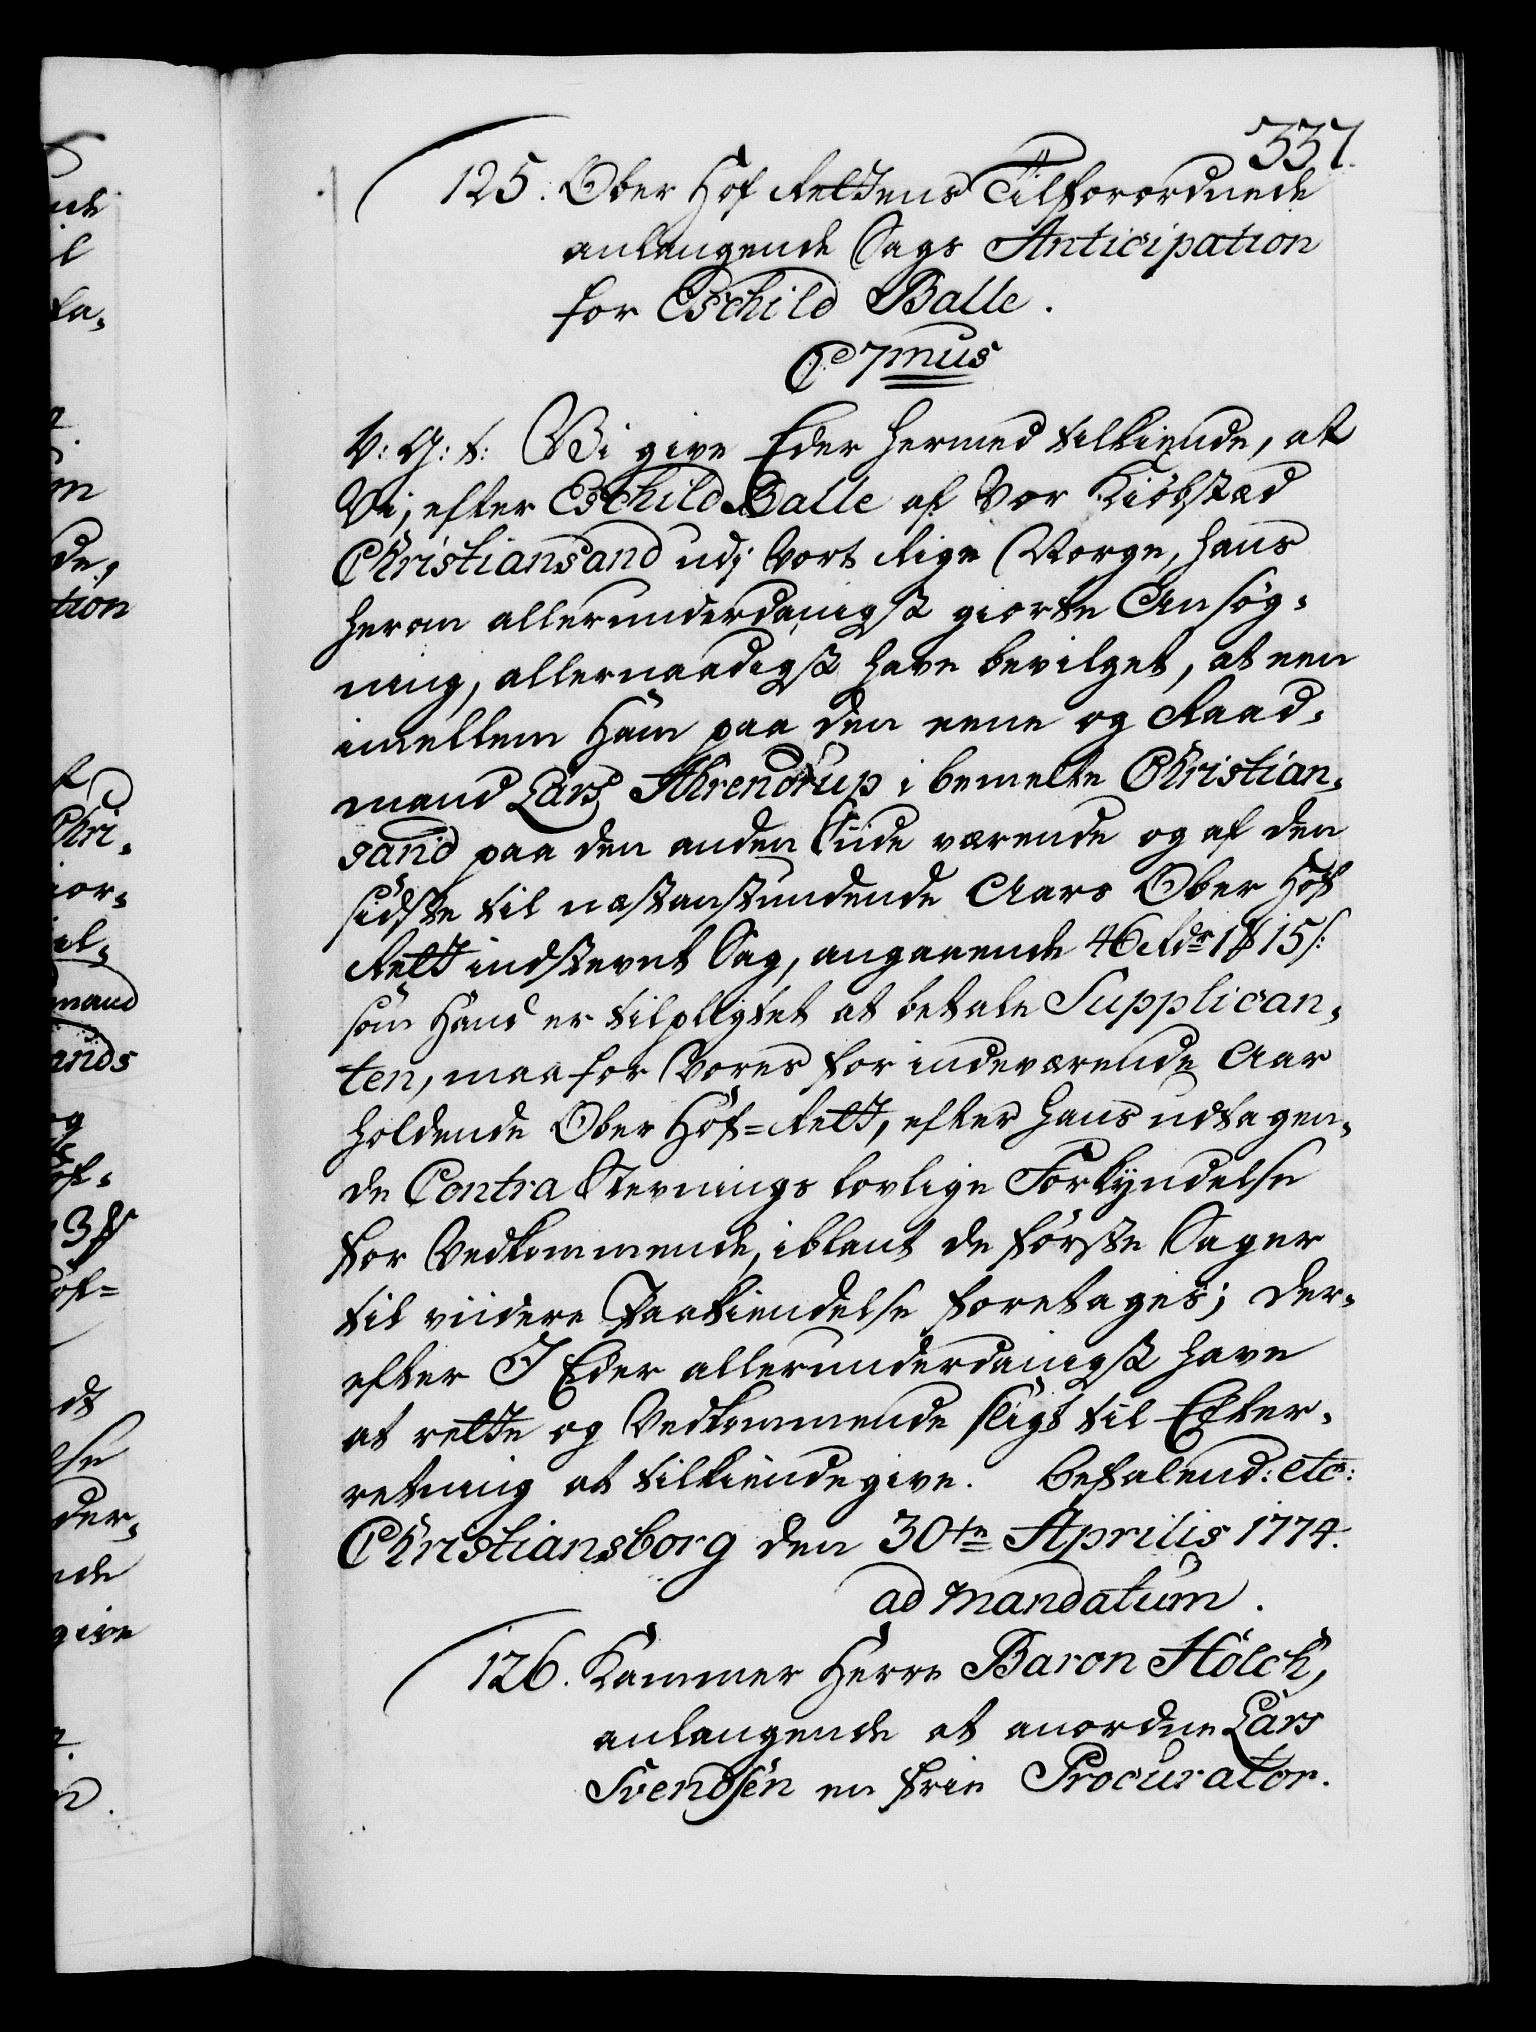 337.
125. Ober Hof Rettens Tilforordnede
anlangende Sags Anticipation
for Eschild Balle.
C 7mus
V: G: t: Vi give Eder hermed tilkiende, at
Vi, efter Eschild Balle af Vor Kiøbstæd
Christiansand udj Vort Rige Norge, hans
herom allerunderdanigst giorte Ansøg-
ning, allernaadigst have bevilget, at een
imellem Ham paa den eene og Raad-
mand Lars Ahrendrup i bemelte Christian-
sand paa den anden Siide værende og af den
sidste til næstanstundende Aars Ober Hof
Rett indstevnt Sag, angaaende 46 Rdr 1 ₰ 15 s:
som Hand er tilpligtet at betale Supplican-
ten, maa for Vores for indeværende Aar
holdende Ober Hof-Rett, efter hans udtagen-
de Contra Stevnings lovlige Forkyndelse
for Vedkommende, iblant de første Sager
til viidere Paakiendelse foretages; der-
efter I Eder allerunderdanigst have
at rette og Vedkommende sligt til Efter-
retning at tilkiendegive. Befalend: etc:
Christiansborg den 30te Aprilis 1774.
ad mandatum.
126. Kammer Herre Baron Holck,
anlangende at anordne Lars
Svendsen en frie Procurator.